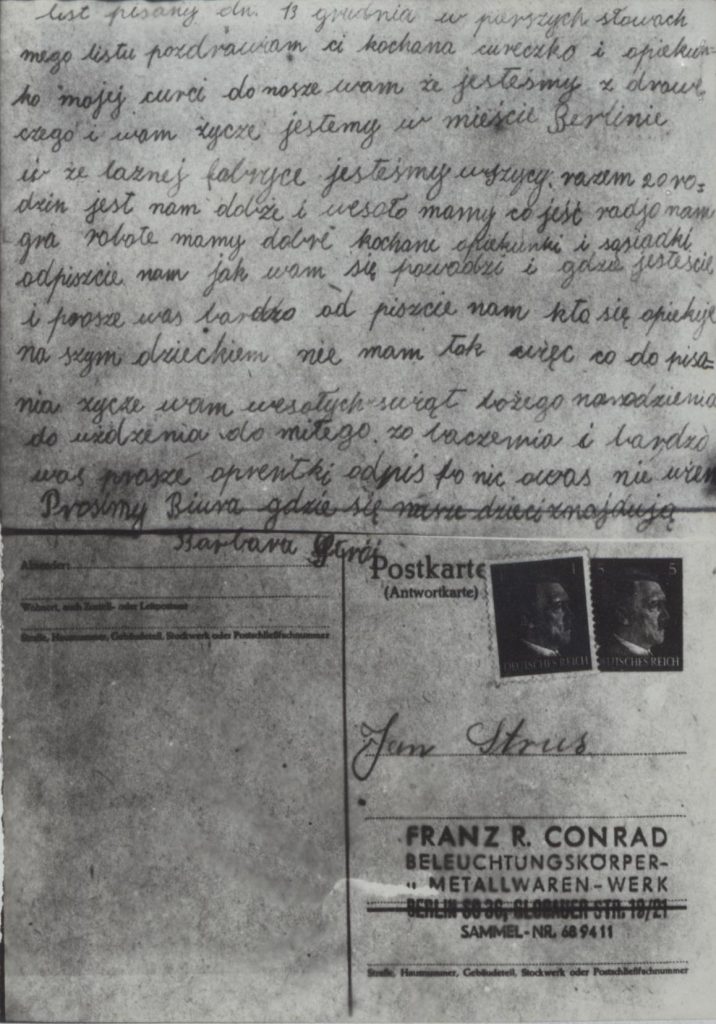 list pisany dn. 13 grudnia w pierszych słowach
mego listu pozdrawiam ci kochana cureczko i opiekun=
ko mojej curci donosze wam że jesteśmy z drowi
czego i wam życze jestemy w mieście Berlinie
w że laznej fabryce jesteśmy wszycy. razem 20 ro=
dzin jest nam dobże i wesoło mamy co jeść radjo nam
gra robote mamy dobre kochane opiekunki i sąsiadki
odpiszcie nam jak wam się powodzi i gdzie jesteście
i prosze was bardzo od piszcie nam kto się opiekuje
na szym dzieckiem nie mam tak więc co do pisa=
nia zycze wam wesołych swiąt bożego narodzienia
do użdzenia do miłego. zo baczewia i bardzo
was prosze oprentki odpis bo nic owas nie wiem
Prosimy Biura gdzie się nasze dzieci znajdują
Barbara
Absender:
Wohnort, auch Zustell- oder Leitpostamt
Straße, Hausnummer, Gebäudeteil, Stockwerk oder Postschließfachnummer
Postkarte
(Antwortkarte)
1
5 5
DEUTSCHES REICH
DEUTSCHES REICH
Jan Strus
FRANZ R. CONRAD
BELEUCHTUNGSKÖRPER-
u METALLWAREN-WERK
BERLIN SO 36, GLOGAUER STR. 19/21
SAMMEL-NR. 68 94 11
Straße, Hausnummer, Gebäudeteil, Stockwerk oder Postschließfachnummer